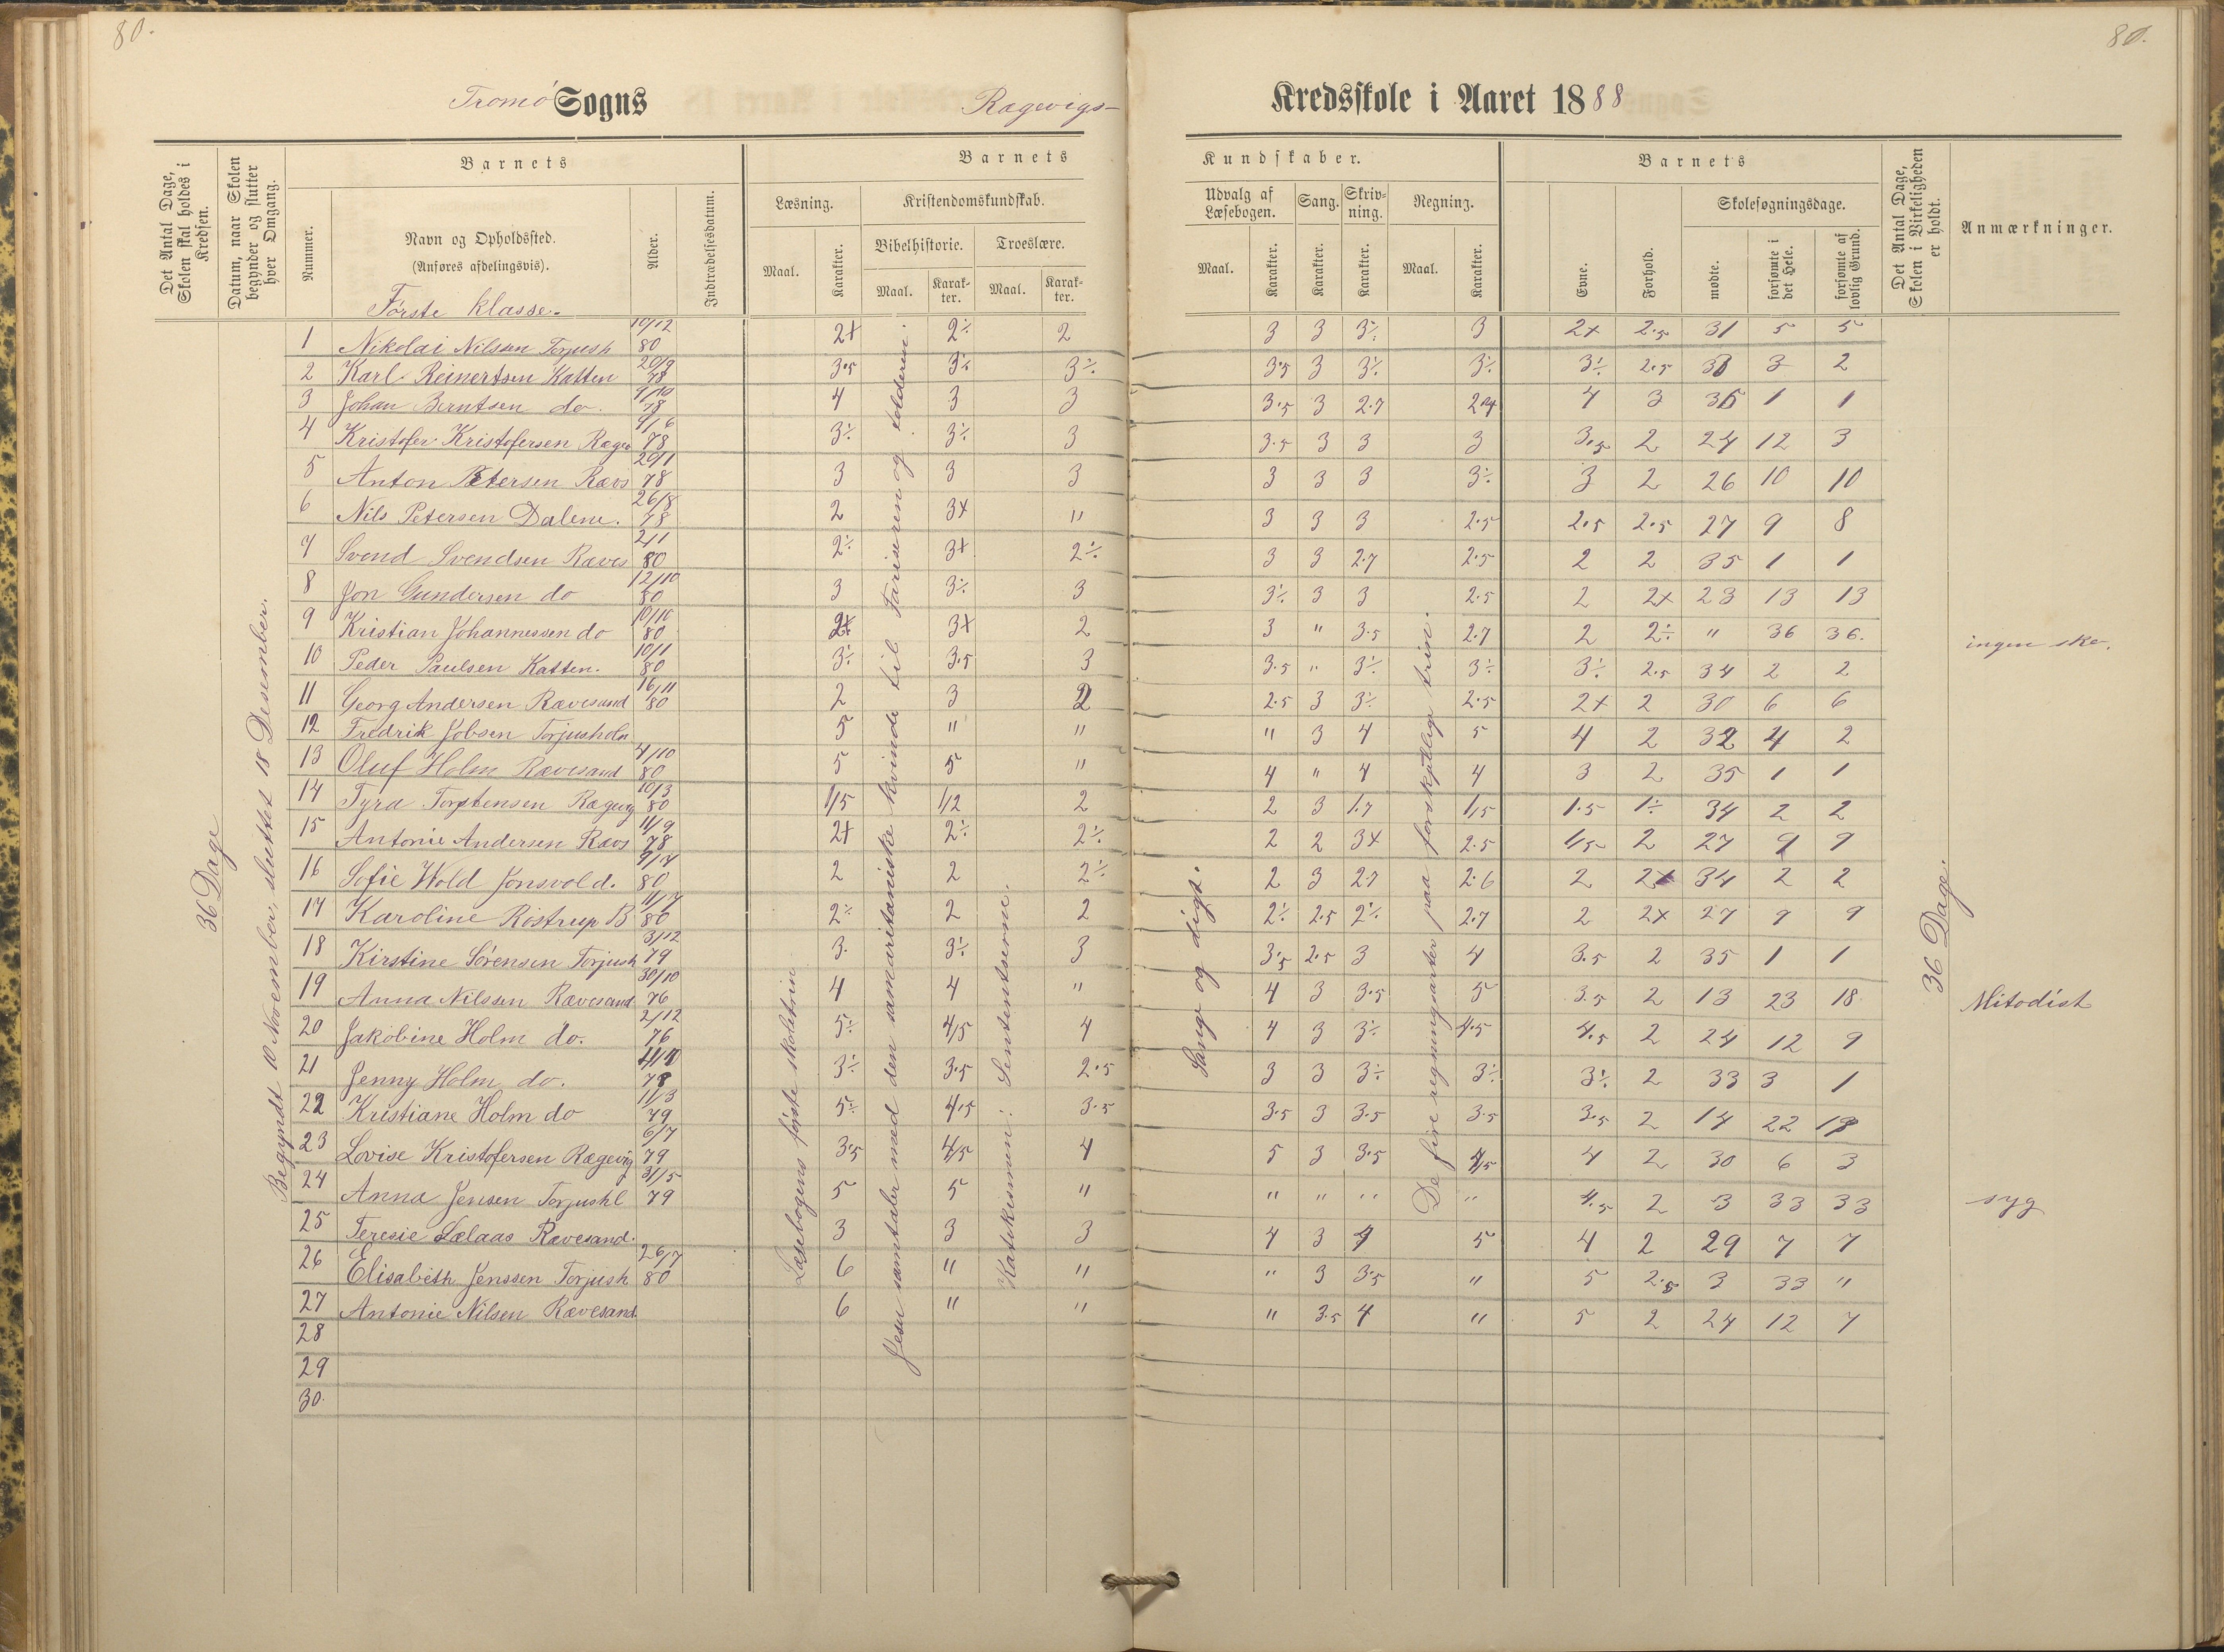 80.
80.
Tromö Sogns Ragevigs- Kredsskole i Aaret 1888
Det Antal Dage, Skolen skal holdes i Kredsen.
Datum, naar Skolen begynder og slutter hver Omgang.
Nummer.
Barnets
Navn og Opholdssted.
(Anføres afdelingsvis).
Alder.
Indtrædelsesdatum.
Barnets
Læsning.
Maal.
Karakter.
Kristendomskundskab.
Bibelhistorie.
Maal.
Karakter.
Troeslære.
Maal.
Karakter.
Kundskaber.
Udvalg af Læsebogen.
Maal.
Karakter.
Sang.
Karakter.
Skrivning.
Karakter.
Regning.
Maal.
Karakter.
Barnets
Evne.
Forhold.
Skolesøgningsdage.
mødte.
forsømte i det Hele.
forsømte af lovlig Grund.
Det Antal Dage, Skolen i Virkeligheden er holdt.
Anmærkninger.
Første klasse.
36 Dage
Begyndt 10 November, sluttet 18 Desember.
Læsebogens første skoletrin
Jesu samtaler med den samaritaniske kvinde til Farisæren og tolderen.
Katekismen: Sententserne.
Sange og digt.
De fire regningsarter paa forskjellige trin.
36 Dage.
1 Nikolai Nilssen Torjush 10/12 80 2+ 2÷ 2 3 3 3÷ 3 2+ 2.5 31 5 5
2 Karl Reinertsen Katten 20/9 78 3.5 3÷ 3÷ 3.5 3 3÷ 3÷ 3÷ 2.5 33 3 2
3 Johan Berntsen do. 9/10 78 4 3 3 3.5 3 2.7 2.4 4 3 35 1 1
4 Kristofer Kristofersen Ragev 9/6 78 3÷ 3÷ 3 3.5 3 3 3 3.5 2 24 12 3
5 Anton Petersen Ravs 29/1 78 3 3 3 3 3 3 3÷ 3 2 26 10 10
6 Nils Petersen Dalene. 26/8 78 2 3+ " 3 3 3 2.5 2.5 2.5 27 9 8
7 Svend Svendsen Raves 2/1 80 2÷ 3+ 2÷ 3 3 2.7 2.5 2 2 35 1 1
8 Jon Gundersen do 12/10 80 3 3÷ 3 3÷ 3 3 2.5 2 2+ 23 13 13
9 Kristian Johannessen do 10/10 80 2+ 3+ 2 3 " 3.5 2.7 2 2÷ " 36 36. ingen sko.
10 Peder Paulsen Katten. 10/1 80 3÷ 3.5 3 3.5 " 3÷ 3÷ 3÷ 2.5 34 2 2
11 Georg Andersen Ravesand 16/11 80 2 3 2 2.5 3 3÷ 2.5 2+ 2 30 6 6
12 Fredrik Jobsen Torjusholm 5 " " " 3 4 5 4 2 32 4 2
13 Oluf Holm Ravesand 4/10 80 5 5 " 4 " 4 4 3 2 35 1 1
14 Tyra Torstensen Ragevig 10/3 80 1/5 1/2 2 2 3 1.7 1/5 1.5 1÷ 34 2 2
15 Antonie Andersen Ravs 11/9 78 2+ 2÷ 2÷ 2 2 3+ 2.5 1/5 2 27 9 9
16 Sofie Wold Jonsvold. 9/4 80 2 2 2÷ 2 3 2.7 2.6 2 2+ 34 2 2
17 Karoline Rostrup B 11/7 80 2÷ 2 2 2÷ 2.5 2÷ 2.7 2 2+ 27 9 9
18 Kirstine Sörensen Torjush 3/12 79 3. 3÷ 3 3.5 2.5 3 4 3.5 2 35 1 1
19 Anna Nilssen Ravesand 30/10 76 4 4 " 4 3 3.5 5 3.5 2 13 23 18 Mitodist
20 Jakobine Holm do. 2/12 76 5÷ 4/5 4 4 3 3÷ 4.5 4.5 2 24 12 9
21 Jenny Holm do. 78 3÷ 3.5 2.5 3 3 3÷ 3÷ 3÷ 2 33 3 1
22 Kristiane Holm do 11/3 79 5÷ 4.5 3.5 3.5 3 3.5 3.5 3.5 2 14 22 19
23 Lovise Kristofersen Ragevig 6/7 79 3.5 4/5 4 5 3 3.5 4/5 4 2 30 6 3
24 Anna Jensen Torjushl 31/5 79 5 5 " " " " " 4.5 2 3 33 33 syg
25 Teresie Lælaas Ravesand. 3 3 3 4 3 4 5 4 2 29 7 7
26 Elisabeth Jenssen Torjush 26/7 80 6 " " " 3 3.5 " 5 2.5 3 33 "
27 Antonie Nilsen Ravesand. 6 " " " 3.5 4 " 5 2 24 12 7
28
29
30.